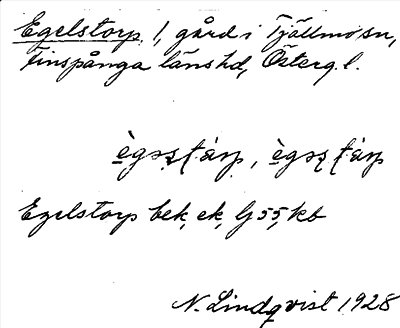 Egelstorp 1, gård i Tjällmo sn,
Finspånga läns hd, Österg. l.
Egelstorp bek, ek, G 55, kb
N. Lindqvist 1928